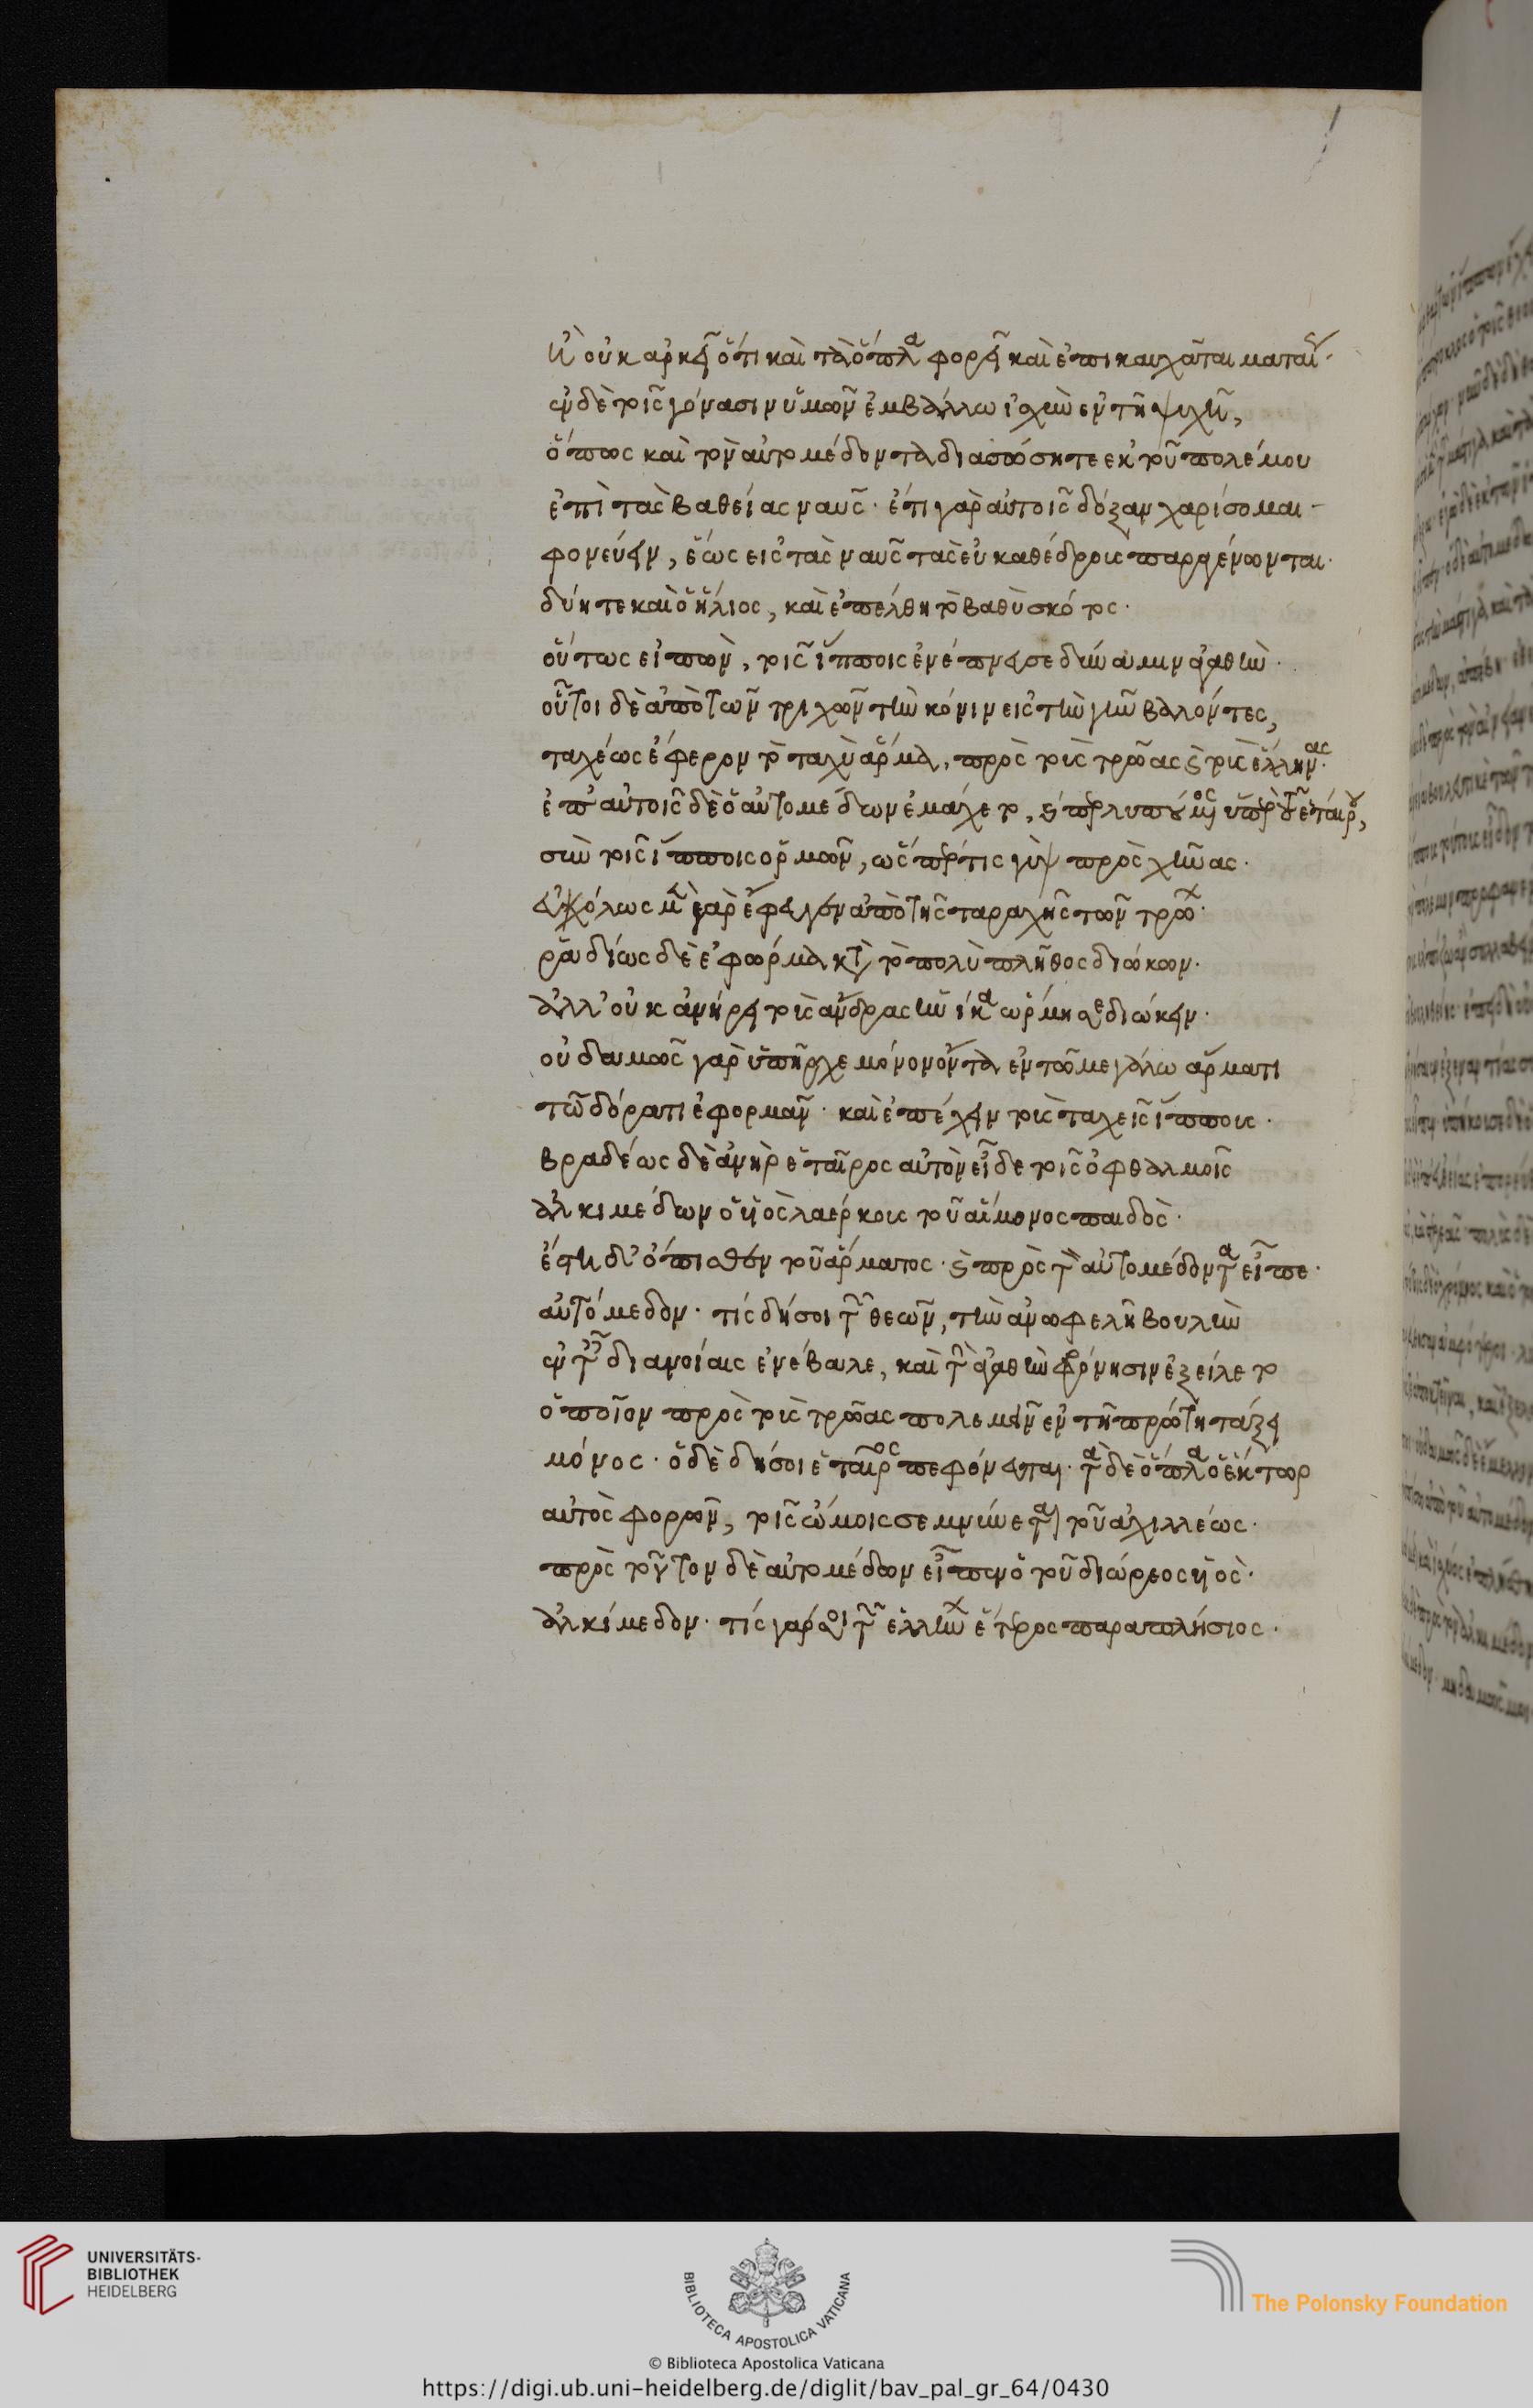 ἢ οὐκ ἀρκεῖ ὅτι καὶ τὰ ὅπλα φορεῖ καὶ ἐπικαυχᾶται ματαί·
ἐν δὲ τοῖς γόνασιν ὑμῶν ἐμβάλλω ἰσχὺν ἐν τῇ ψυχῇ,
ὅπως καὶ τὸν αὐτομέδοντα διασώσητε ἐκ τοῦ πολέμου
ἐπὶ τὰς βαθείας ναῦς· ἔτι γὰρ αὐτοῖς δόξαν χαρίσομαι
φονεύειν, ἕως εἰς τὰς ναῦς τὰς εὐκαθέδρους παραγένωνται·
δύῃ τε καὶ ὁ ἥλιος, καὶ ἐπέλθῃ τὸ βαθὺ σκότος·
οὕτως εἰπὼν, τοῖς ἵπποις ἐνέπνευσε δύναμιν ἀγαθήν·
οὗτοι δὲ ἀπὸ τῶν τριχῶν τὴν κόνιν εἰς τὴν γῆν βαλόντες,
ταχέως ἔφερον τὸ ταχὺ ἅρμα, πρὸς τοὺς τρῶας καὶ τοὺς ἕλληνας·
ἐπ' αὐτοῖς δὲ ὁ αὐτομέδων ἐμάχετο, καίπερ λυπούμενος ὑπὲρ τοῦ ἑταίρου,
σὺν τοῖς ἵπποις ὁρμῶν, ὥσπερ τις γὺψ πρὸς χῆνας·
εὐκόλως μὲν γὰρ ἔφευγεν ἀπὸ τῆς ταραχῆς τῶν τρώων·
ῥᾳδίως δὲ ἐφώρμα κατὰ τὸ πολὺ πλῆθος διώκων·
ἀλλ' οὐκ ἀνῄρει τοὺς ἄνδρας ἡνίκα ὥρμησε διώκειν·
οὐδαμῶς γὰρ ὑπῆρχε μόνον ὄντα ἐν τῶ μεγάλω ἅρματι
τῶ δόρατι ἐφορμᾶν· καὶ ἐπέχειν τοὺς ταχεῖς ἵππους·
βραδέως δὲ ἀνὴρ ἑταῖρος αὐτὸν εἶδε τοῖς ὀφθαλμοῖς
ἀλκιμέδων ὁ υἱὸς λαέρκους τοῦ αἵμονος παιδὸς·
ἔστη δ' ὄπισθεν τοῦ ἅρματος· καὶ πρὸς τὸν αὐτομέδοντα εἶπε·
αὐτόμεδον· τίς δή σοι τῶν θεῶν, τὴν ἀνωφελῆ βουλὴν
ἐν ταῖς διανοίαις ἐνέβαλε, καὶ τὴν ἀγαθὴν φρόνησιν ἐξείλετο
ὁποῖον πρὸς τοὺς τρῶας πολεμεῖν ἐν τῇ πρώτῃ τάξει
μόνος· ὁ δὲ δή σοι ἑταῖρος πεφόνευται· τὰ δὲ ὅπλα ὁ ἕκτωρ
αὐτὸς φορῶν, τοῖς ὤμοις σεμνύνεται τοῦ ἀχιλλέως·
πρὸς τοῦτον δὲ αὐτομέδων εἶπεν ὁ τοῦ διώρεος υἱὸς·
ἀλκίμεδον· τίς γάρ σοι τῶν ἑλλήνων ἕτερος παραπλήσιος·
UNIVERSITÄTS-
BIBLIOTHEK
HEIDELBERG
BIBLIOTECA APOSTOLICA VATICANA
The Polonsky Foundation
© Biblioteca Apostolica Vaticana
https://digi.ub.uni-heidelberg.de/diglit/bav_pal_gr_64/0430